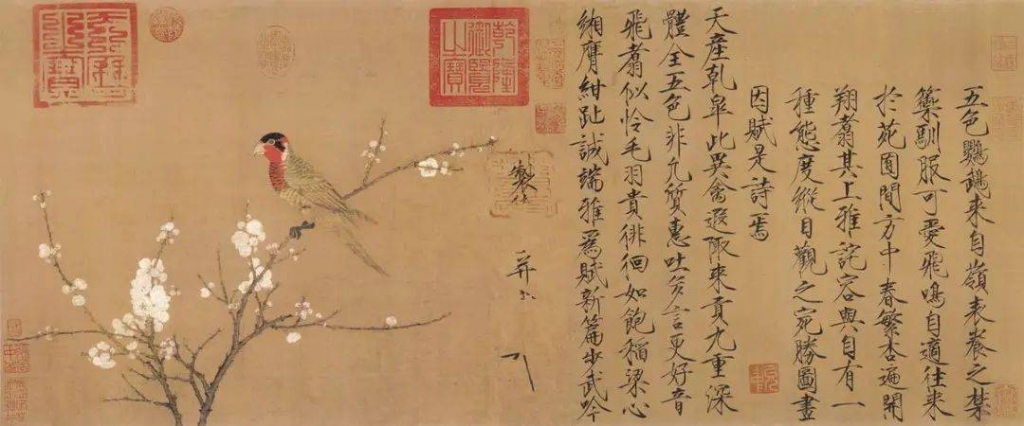 五色鸚鵡來自嶺表養之禁
籞馴服可愛飛鳴自適往來
於苑囿間方中春繁杏遍開
翔翥其上雅詫容與自有一
種態度縱目觀之宛勝圖畫
因賦是詩焉
天產乾皋此異禽遐陬來貢九重深
體全五色非凡質惠吐多言更好音
飛翥似憐毛羽貴徘徊如飽稻粱心
緗膺紺趾誠端雅爲賦新篇步武吟
乾隆御覽之寶
製
并
天曆之寶